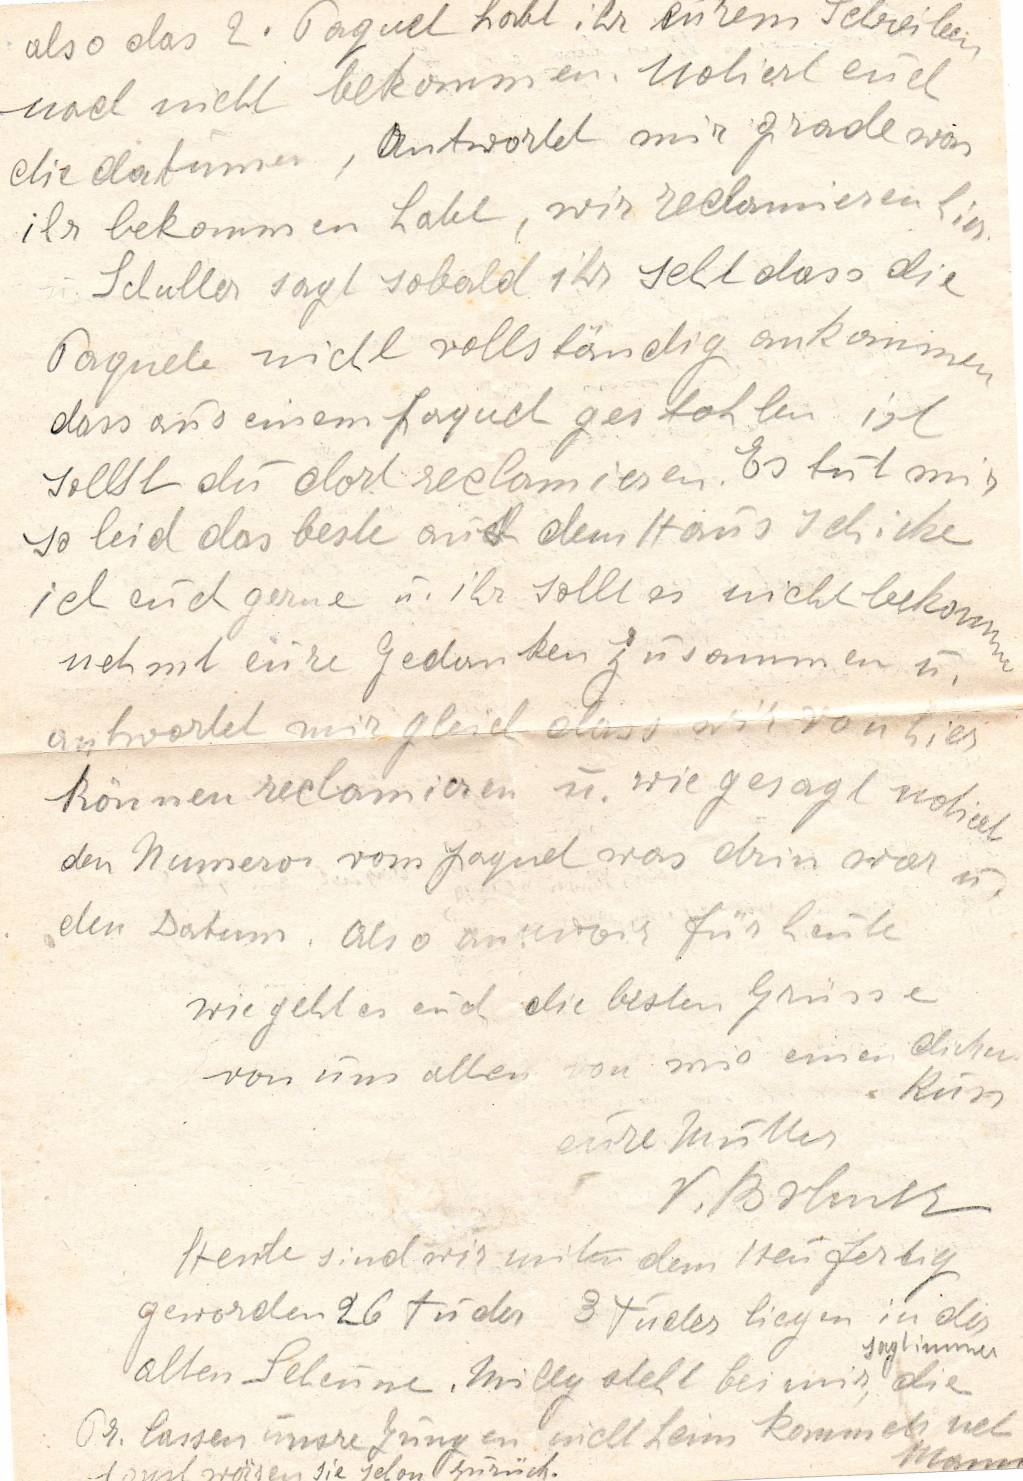 also das 2. Paquet habt ihr eurem Schreiben
noch nicht bekommen. Notiert euch
die datumer, Antwortet mir grade was
ihr bekommen habt, wir reclamieren hier.
Schuller sagt sobald ihr seht dass die
Paquete nicht vollständig ankommen
dass aus einem paquet gestohlen ist
sollst du dort reclamieren. Es tut mir
so leid das beste aus dem Haus schicke
ich euch gerne u. ihr sollt es nicht bekommen
nehmt eure Gedanken zusammen u.
antwortet mir gleich dass wir von hier
können reclamieren u. wie gesagt notiert
den Numeros vom paquet was drin war u.
den Datum. Also für heute
wie geht es euch die besten Grüsse
von uns allen von mir einen dicken
Kuss
eure Mutter
Heute sind wir mit dem Heu fertig
geworden 26 Fuder 3 Fuder liegen in der
sagt immer
alten Scheune. Milly steht bei mir, die
Pr. lassen unsre Jungen nicht heim kommen
sonst wären sie schon zurück.